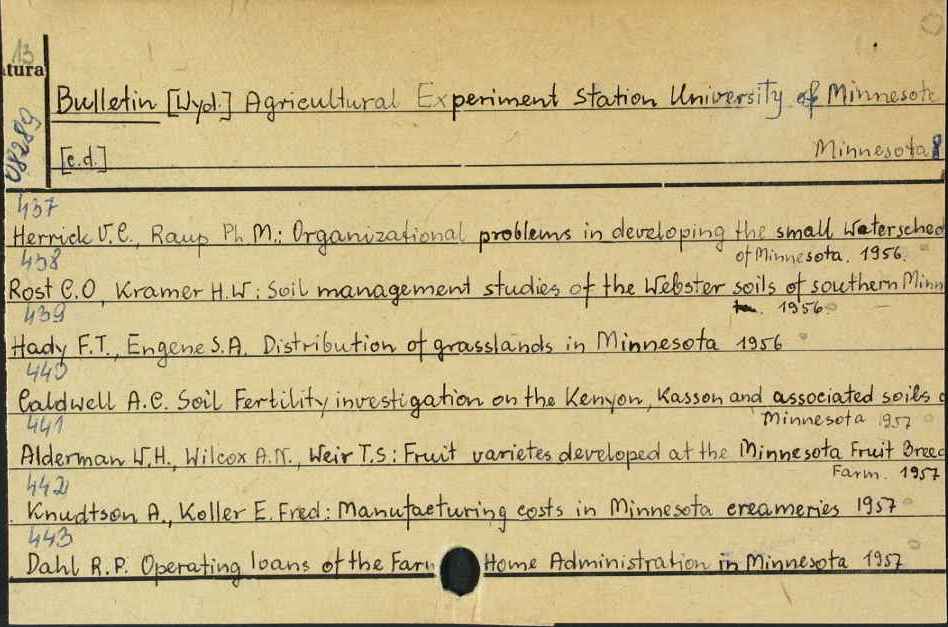 13
atura
Bulletin [Wyd.] Agricultural Experiment Station University of Minnesota
08289
[c.d.] Minnesota
437
Herrick V.C., Raup Ph M.: Organizational problems in developing the small Watersched
of Minnesota. 1956.
438
Rost C.O, Kramer H.W: Soil management studies of the Webster soils of southern Minn
1956
439
Hady F.T., Engene S.A. Distribution of grasslands in Minnesota 1956
440
Caldwell A.C. Soil Fertility investigation on the Kenyon, Kasson and associated soils o
Minnesota 1957
441
Alderman W.H., Wilcox A.N., Weir T.S: Fruit varietes developed at the Minnesota Fruit Breed
Farm. 1957
442
Knudtson A., Koller E. Fred: Manufacturing costs in Minnesota creameries 1957
443
Dahl R.P. Operating loans of the Farm Home Administration in Minnesota 1957